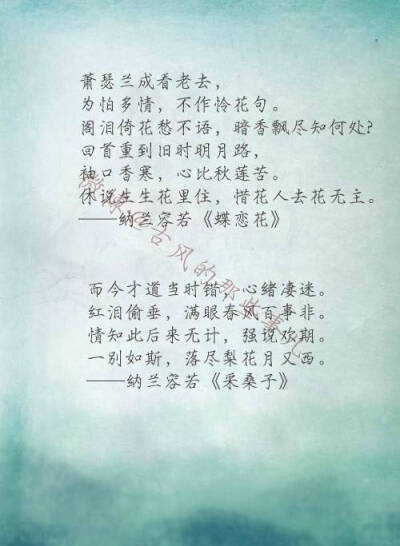 萧瑟兰成看老去，
为怕多情，不作怜花句。
阁泪倚花愁不语，暗香飘尽知何处?
回首重到旧时明月路，
袖口香寒，心比秋莲苦。
休说生生花里住，惜花人去花无主。
——纳兰容若《蝶恋花》
而今才道当时错，心绪凄迷。
红泪偷垂，满眼春风百事非。
情知此后来无计，强说欢期。
一别如斯，落尽梨花月又西。
——纳兰容若《采桑子》